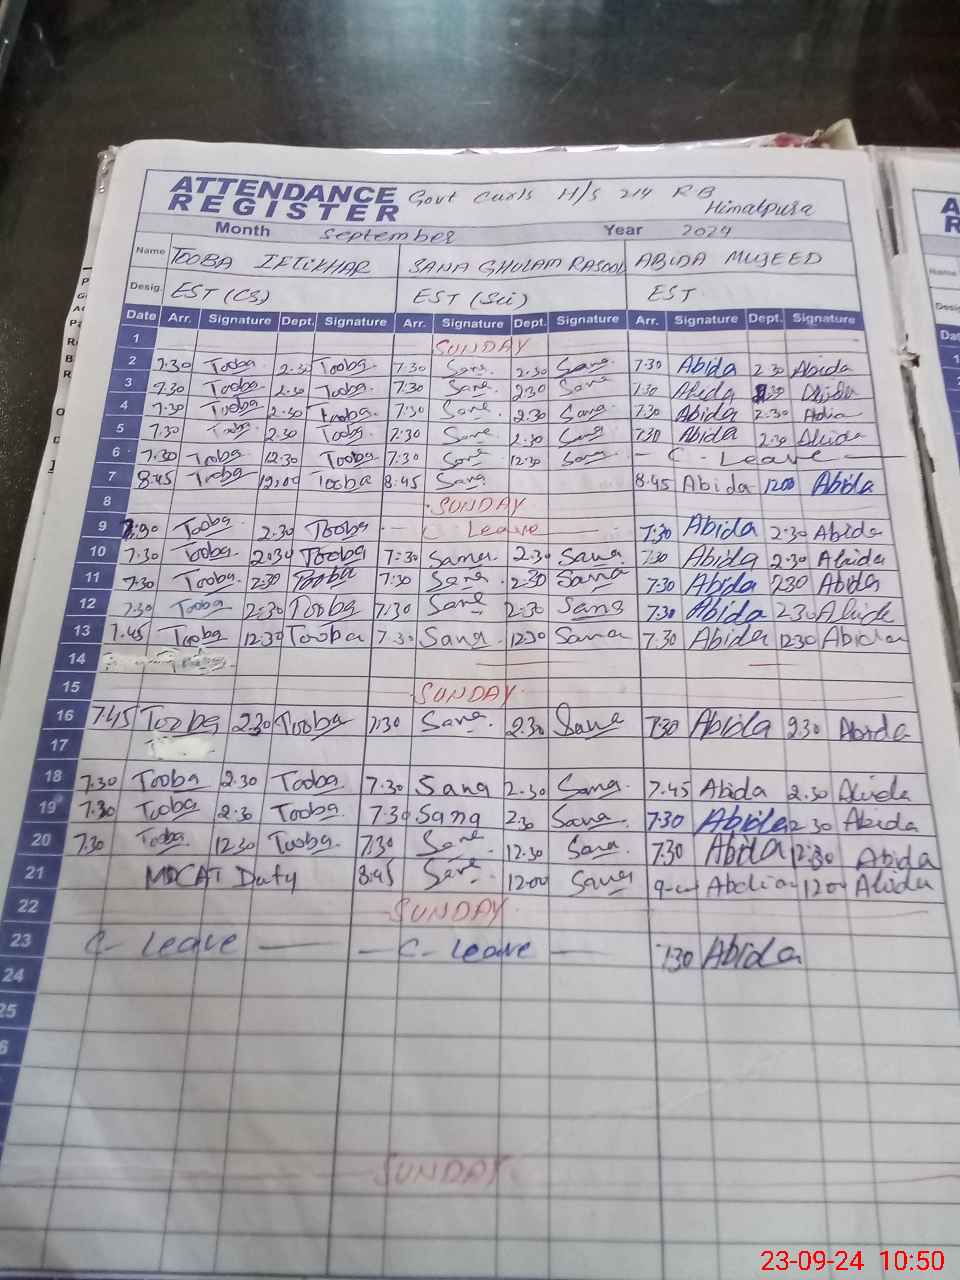 ATTENDANCE REGISTER Govt Girls H/S 214 RB Himatpura
Month September Year 2024
Name TOOBA IFTIKHAR SANA GHULAM RASOOL ABIDA MUJEED
Desig. EST (CS) EST (Sci) EST
Date Arr. Signature Dept. Signature Arr. Signature Dept. Signature Arr. Signature Dept. Signature
1 SUNDAY
2 7.30 Tooba 2.30 Tooba 7.30 Sana 2.30 Sana 7.30 Abida 2.30 Abida
3 7.30 Tooba 2.30 Tooba. 7.30 Sana 2.30 Sana 7.30 Abida 2.30 Abida
4 7.30 Tooba 2.30 Tooba. 7.30 Sana 2.30 Sana 7.30 Abida 2.30 Abida
5 7.30 Tooba 2.30 Tooba. 7.30 Sana 2.30 Sana 7.30 Abida 2.30 Abida
6 7.30 Tooba 12.30 Tooba 7.30 Sana 12.30 Sana - C - Leave
7 8.45 Tooba 12,00 Tooba 8.45 Sana 8.45 Abida 1200 Abida
8 SUNDAY
9 7.30 Tooba 2.30 Tooba - C Leave - 7.30 Abida 2.30 Abida
10 7.30 Tooba. 2.30 Tooba 7.30 Sana. 2.30 Sana 7.30 Abida 2.30 Abida
11 7.30 Tooba. 2.30 Tooba 7.30 Sana 2.30 Sana 7.30 Abida 230 Abida
12 7.30 Tooba 2.30 Tooba 7.30 Sana 2.30 Sana 7.30 Abida 2.30 Abida
13 7.45 Tooba 12.30 Tooba 7.30 Sana 1230 Sana 7.30 Abida 1230 Abida
14
15 SUNDAY
16 7.45 Tooba 2.30 Tooba 7.30 Sana. 2.30 Sana 7.30 Abida 2.30 Abida
17
18 7.30 Tooba 2.30 Tooba 7.30 Sana 2.30 Sana. 7.45 Abida 2.30 Abida
19 7.30 Tooba 2.30 Tooba. 7.30 Sana 2.30 Sana. 7.30 Abida 2.30 Abida
20 7.30 Tooba. 12.30 Tooba. 7.30 Sana 12.30 Sana. 7.30 Abida 12.30 Abida
21 MDCAT Duty 8.45 Sana 1200 Sana Abida 1200 Abida
22 SUNDAY
23 C- Leave — - C- Leave — 7.30 Abida
24
25
6
SUNDAY
23-09-24 10:50